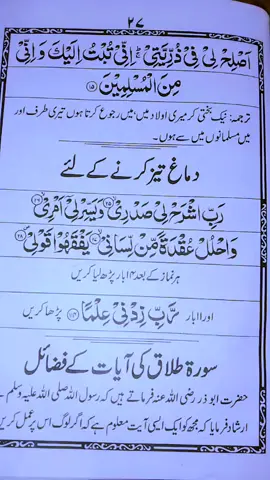 ۲۷
اَصْلِحْ لِیْ فِیْ ذُرِّیَّتِیْ ۚ اِنِّیْ تُبْتُ اِلَیْكَ وَ اِنِّیْ
مِنَ الْمُسْلِمِیْنَ ﴿۱۵﴾
ترجمہ: نیک بختی کر میری اولاد میں، میں رجوع کرتا ہوں تیری طرف اور
میں مسلمانوں میں سے ہوں۔
دماغ تیز کرنے کے لئے
رَبِّ اشْرَحْ لِیْ صَدْرِیْ ﴿۲۵﴾ وَیَسِّرْلِیْۤ اَمْرِیْ ﴿۲۶﴾
وَاحْلُلْ عُقْدَةً مِّنْ لِّسَانِیْ ﴿۲۷﴾ یَفْقَهُوْا قَوْلِیْ ﴿۲۸﴾
ہر نماز کے بعد ۱۴ بار پڑھ لیا کریں
اور ۱۱ بار رَبِّ زِدْنِیْ عِلْمًا ﴿۱۱۴﴾ پڑھا کریں
سورۃ طلاق کی آیات کے فضائل
حضرت ابو ذر رضی اللہ عنہ فرماتے ہیں کہ رسول اللہ صلی اللہ علیہ وسلم نے
ارشاد فرمایا کہ مجھ کو ایک ایسی آیت معلوم ہے کہ اگر لوگ اس پر عمل کریں